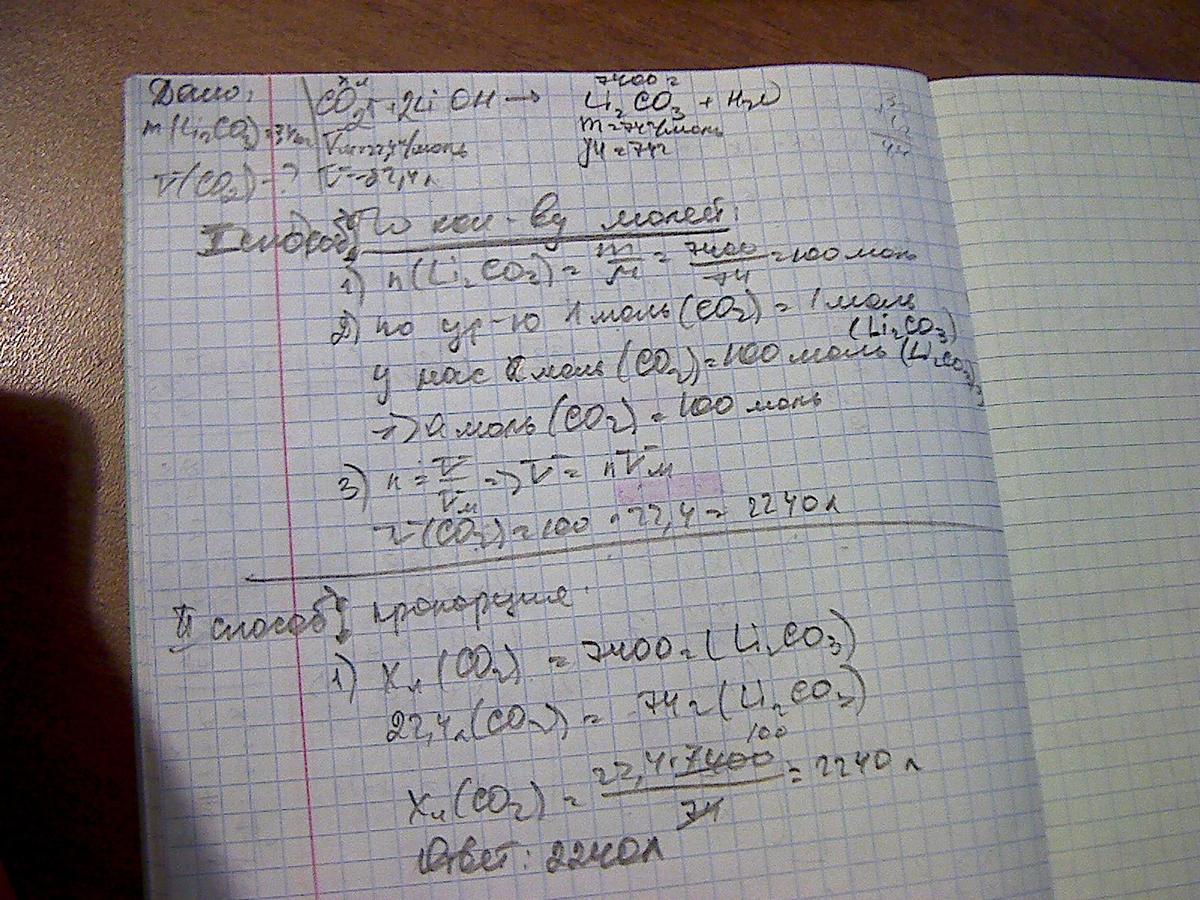 Дано:
CO2↑ + 2LiOH → Li2CO3 + H2O
xл
7400г
m(Li2CO3) =
Vм=22,4л/моль
m=74г/моль
V(CO2) - ?
V=22,4л
M=74г
I способ: По кол-ву молей:
1) n(Li2CO2) = m/M = 7400/74 = 100 моль
2) по ур-ю 1 моль (CO2) = 1 моль
(Li2CO3)
у нас a моль (CO2) = 100 моль (Li2CO3)
=> a моль (CO2) = 100 моль
3) n = V/Vм => V = nVм
V(CO2) = 100 · 22,4 = 2240л
II способ: пропорция
1) Xл (CO2) = 7400г (Li2CO3)
22,4л (CO2) = 74г (Li2CO3)
100
Xл (CO2) = 22,4·7400/74 = 2240 л
Ответ: 2240л